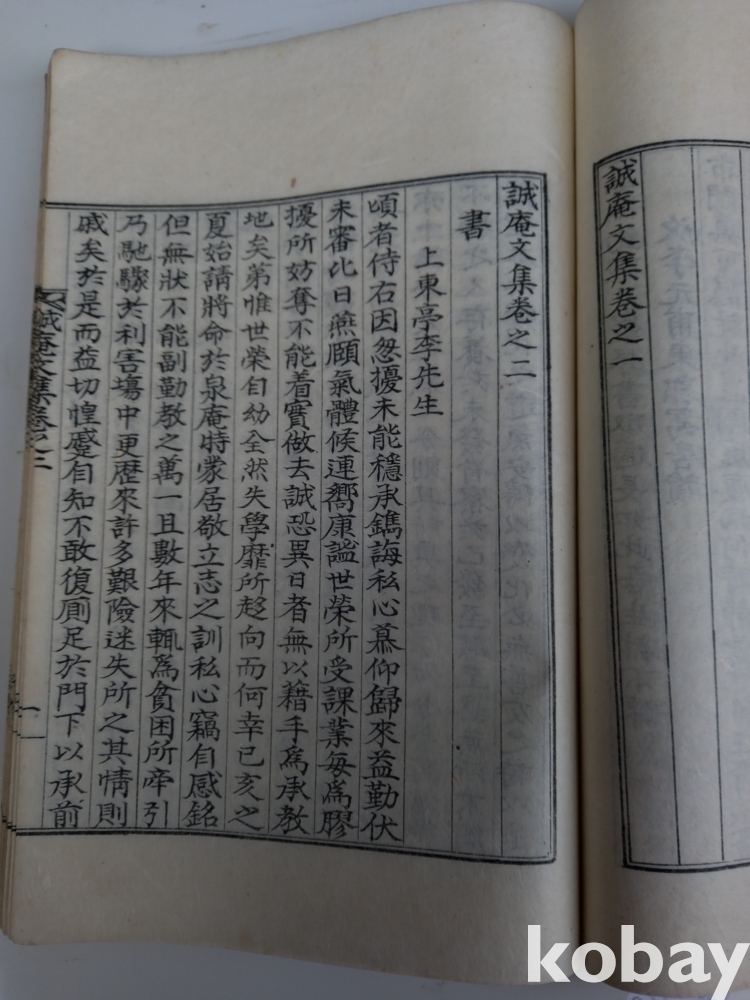 誠庵文集卷之一
誠庵文集卷之二
書
上東亭李先生
頃者侍右因怱擾未能穩承鐫誨私心慕仰歸來益勤伏
未審比日燕頤氣體候連嚮康謐世榮所受課業每爲膠
擾所妨奪不能着實做去誠恐異日者無以藉手爲承教
地矣第惟世榮自幼全然失學靡所趍向而何幸已亥之
夏始請將命於泉庵時蒙居敬立志之訓私心竊自感銘
但無狀不能副勤教之萬一且數年來輒爲貧困所牽引
乃馳騾於利害塲中更歷來許多艱險迷失所之其情則
戚矣於是而益切惶蹙自知不敢復厠足於門下以承前
誠庵文集卷之二
一
kobay